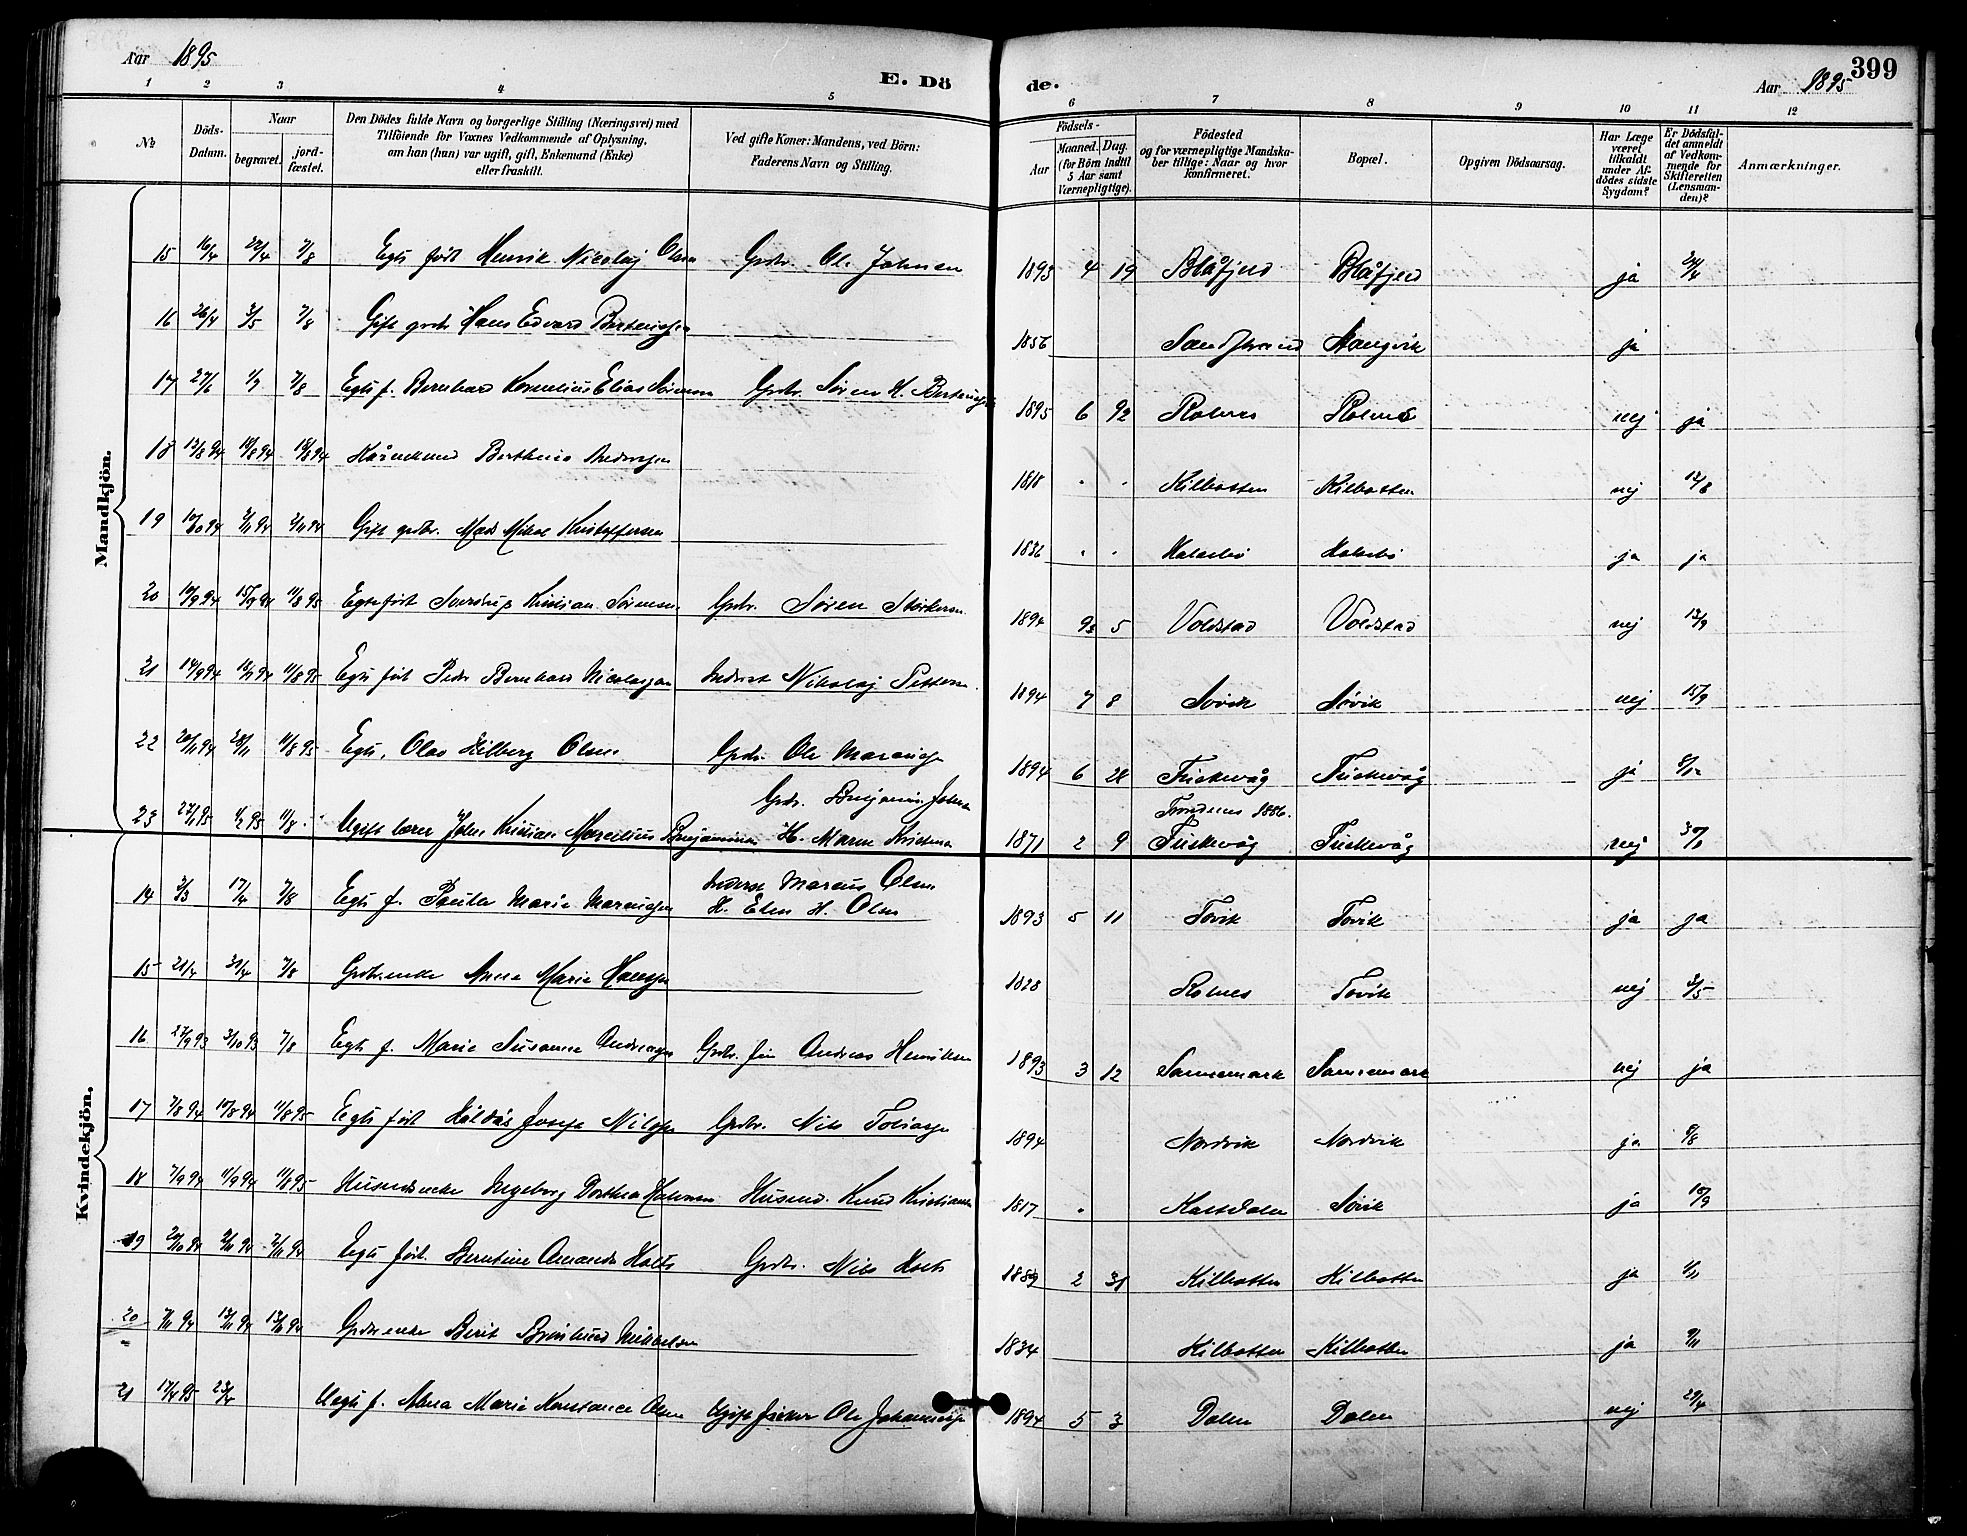 Aar 1895
E. Dö
de.
Aar 1895
399
1 2 3 4 5 6 7 8 9 10 11 12
№
Döds-Datum.
Naar
begravet.
jord-fæstet.
Den Dödes fulde Navn og borgerlige Stilling (Næringsvei) med
Tilföiende for Voxnes Vedkommende af Oplysning,
om han (hun) var ugift, gift, Enkemand (Enke)
eller fraskilt.
Ved gifte Koner: Mandens, ved Börn:
Faderens Navn og Stilling.
Födsels-
Aar
Maaned.
Dag.
(for Börn indtil
5 Aar samt
Værnepligtige).
Födested
og for værnepligtige Mandska-
ber tillige: Naar og hvor
konfirmeret.
Bopæl.
Opgiven Dödsaarsag.
Har Læge
været
tilkaldt
under Af-
dödes sidste
Sygdom?
Er Dödsfal-
det anmeldt
af Vedkom-
mende for
Skifteretten
(Lensman-
den)?
Anmærkninger.
Mandkjön.
15 16/4 22/4 7/8 Egte født Henrik Nicolaj Olsen Grdbr. Ole Johnsen 1893 4 19 Blåfjeld Blåfjeld ja 24/4
16 26/4 3/5 7/8 Gift grdbr Hans Edvard Berteussen 1856 Sandstrand Stangvik ja
17 27/6 1/7 7/8 Egte f. Bernhard Kornelius Elias Sørensen Grdbr. Søren H. Berteussen 1895 6 92 Rolnes Rolnes nej ja
18 12/8 94 18/8 94 18/8 94 Kårmand Bertheus Andersen 1818 Kilbotten Kilbotten nej 12/8
19 10/10 94 2/11 94 2/11 94 Gift grdbr. Mads Mikal Kristoffersen 1836 Halsebø Halsebø ja ja
20 10/9 94 15/9 94 11/8 95 Egte født Sverdrup Kristian Sørensen Grdbr. Søren Størkersen 1894 93 5 Voldstad Voldstad nej 13/9
21 14/9 94 18/9 94 11/8 95 Egte født Peder Bernhard Nicolaysen Inderst Nikolaj Pettersen 1894 7 8 Søvik Søvik nej 15/9
22 20/11 94 28/11 11/8 95 Egte, Olav Hilberg Olsen Grdbr. Ole Mareusen 1894 6 28 Fuskevåg Fuskevåg ja
Grdbr. Benjamin Johnsen
Trondenes 1886.
23 27/1 95 1/2 95 11/8 Ugift lærer John Kristian Marselius Benjaminsen H. Maren Kristensen 1871 2 9 Fuskevåg Fuskevåg nej
Kvindekjön.
Inderst Marcus Olsen
14 3/3 17/4 7/8 Egte f. Paula Marie Marcussen H. Elen H. Olsen 1893 5 11 Tovik Tovik ja ja
15 21/4 30/4 7/8 Grdbr.enke Anna Marie Hansen 1828 Rolnes Tovik nej 2/5
16 27/9 93 3/10 93 7/8 Egte f. Marie Susanna Andreassen Grdbr. Andreas Henriksen 1893 3 12 Sannemark Sannemark nej ja
17 7/8 94 10/8 94 11/8 95 Egte født Hildås Josefa Nilssen Grdbr. Nils Tobiassen 1894 Nordvik Nordvik ja 8/8
18 7/9 94 11/9 94 11/8 95 Husmdsenke Ingeborg Dorthea Halvorsen Husmd. Knud Kristiansen 1817 Kalsdalen Søvik ja 10/9
19 20/10 94 2/11 94 2/11 94 Egte født. Berntine Amanda Holts Grdbr. Nils Holts 1889 2 31 Kilbotten Kilbotten ja 1/11
20 7/11 94 13/11 94 13/11 94 Grdbr.enke Berit Brynhild Mikkelsen 1834 Kilbotten Kilbotten ja 9/11
21 17/4 95 23/4 Uegte f. Alma Marie Konstance Olsen Ugift fisker Ole Johannessen 1894 5 3 Dalen Dalen nej 29/4